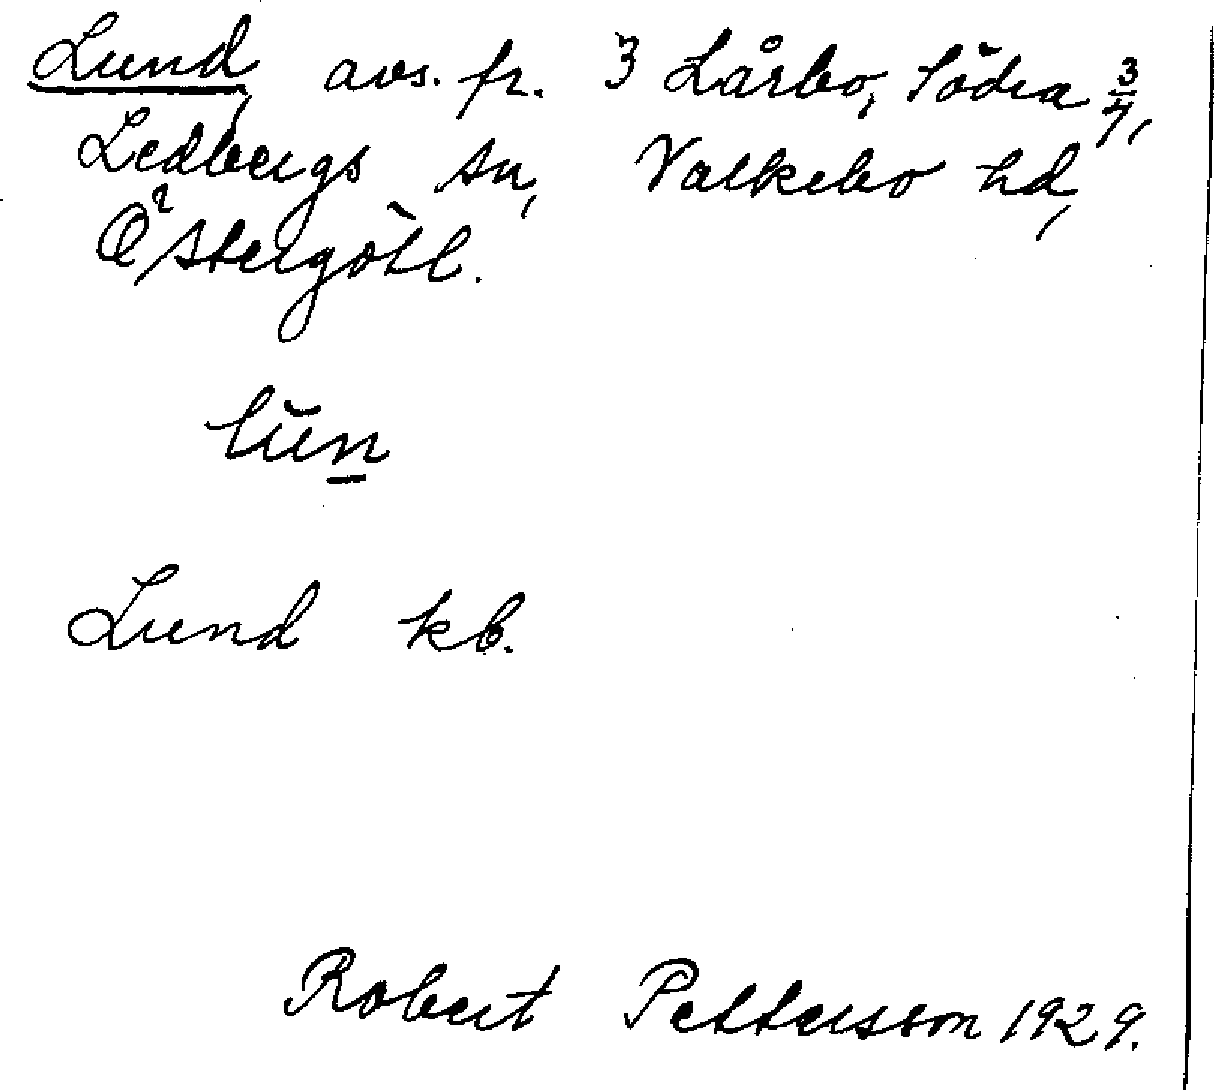 Lund, avs. fr. 3 Lårbo, Södra 3/4,
Ledbergs sn, Valkebo hd,
Östergötl.
lŭn
Lund kb.
Robert Pettersson 1929.